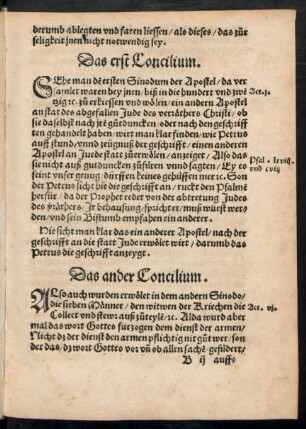 derumb ablegten vnd faren liessen / als dieses / das zůr
seligkeit jnen nicht notwendig sey.
Das erst Concilium.
SEhe man dē ersten Sinodum der Apostel / da ver
samlet waren bey jnen / biß in die hundert vnd zwē
Act. j.
tzig ꝛc. zů erkiessen vnd wölen / ein andern Apostel
an stat des abgefallen Jude des verräthers Christi / ob
sie da selbst nach jrē gůtduncken / oder nach den geschriff
ten gehandelt haben / wirt man klar finden / wie Petrus
auff stund / vnnd zeügnuß der geschrifften / einen andern
Apostel an Judē statt zůerwölen / anzeiget / Als das
sie nicht auß gutduncken zůfůren vnd sagten / Ey es
Psal. lxviij.
vnd cviij
seint vnser genug / dürffen keines gehülffen mer ꝛc. Son
der Petrus sicht hie die geschrifft an / ruckt den Psalmē
herfür / da der Prophet redet von der abtretung Judes
des v̄räthers / Ir behausung / spricht er / muß wüst wer=
den / vnd sein Bistumb empfahen ein anderer.
Hie sicht man klar das ein anderer Apostel / nach der
geschrifft an die statt Jude erwölet wirt / darumb das
Petrus die geschrifft anzeygt.
Das ander Concilium.
ALso auch wurden erwölet in dem andern Sinodo /
die sieben Männer / den witwen der Kriechen die
Act. vj.
Collect vnd stewr auß zůteylē ꝛc. Alda wurd aber
mal das wort Gottes fürzogen dem dienst der armen /
Nicht dz der dienst den armen pflichtig nit gůt wer / son
der das / dz wort Gottes vor vn̄ ob allen sachē gefüdert /
B ij auffs